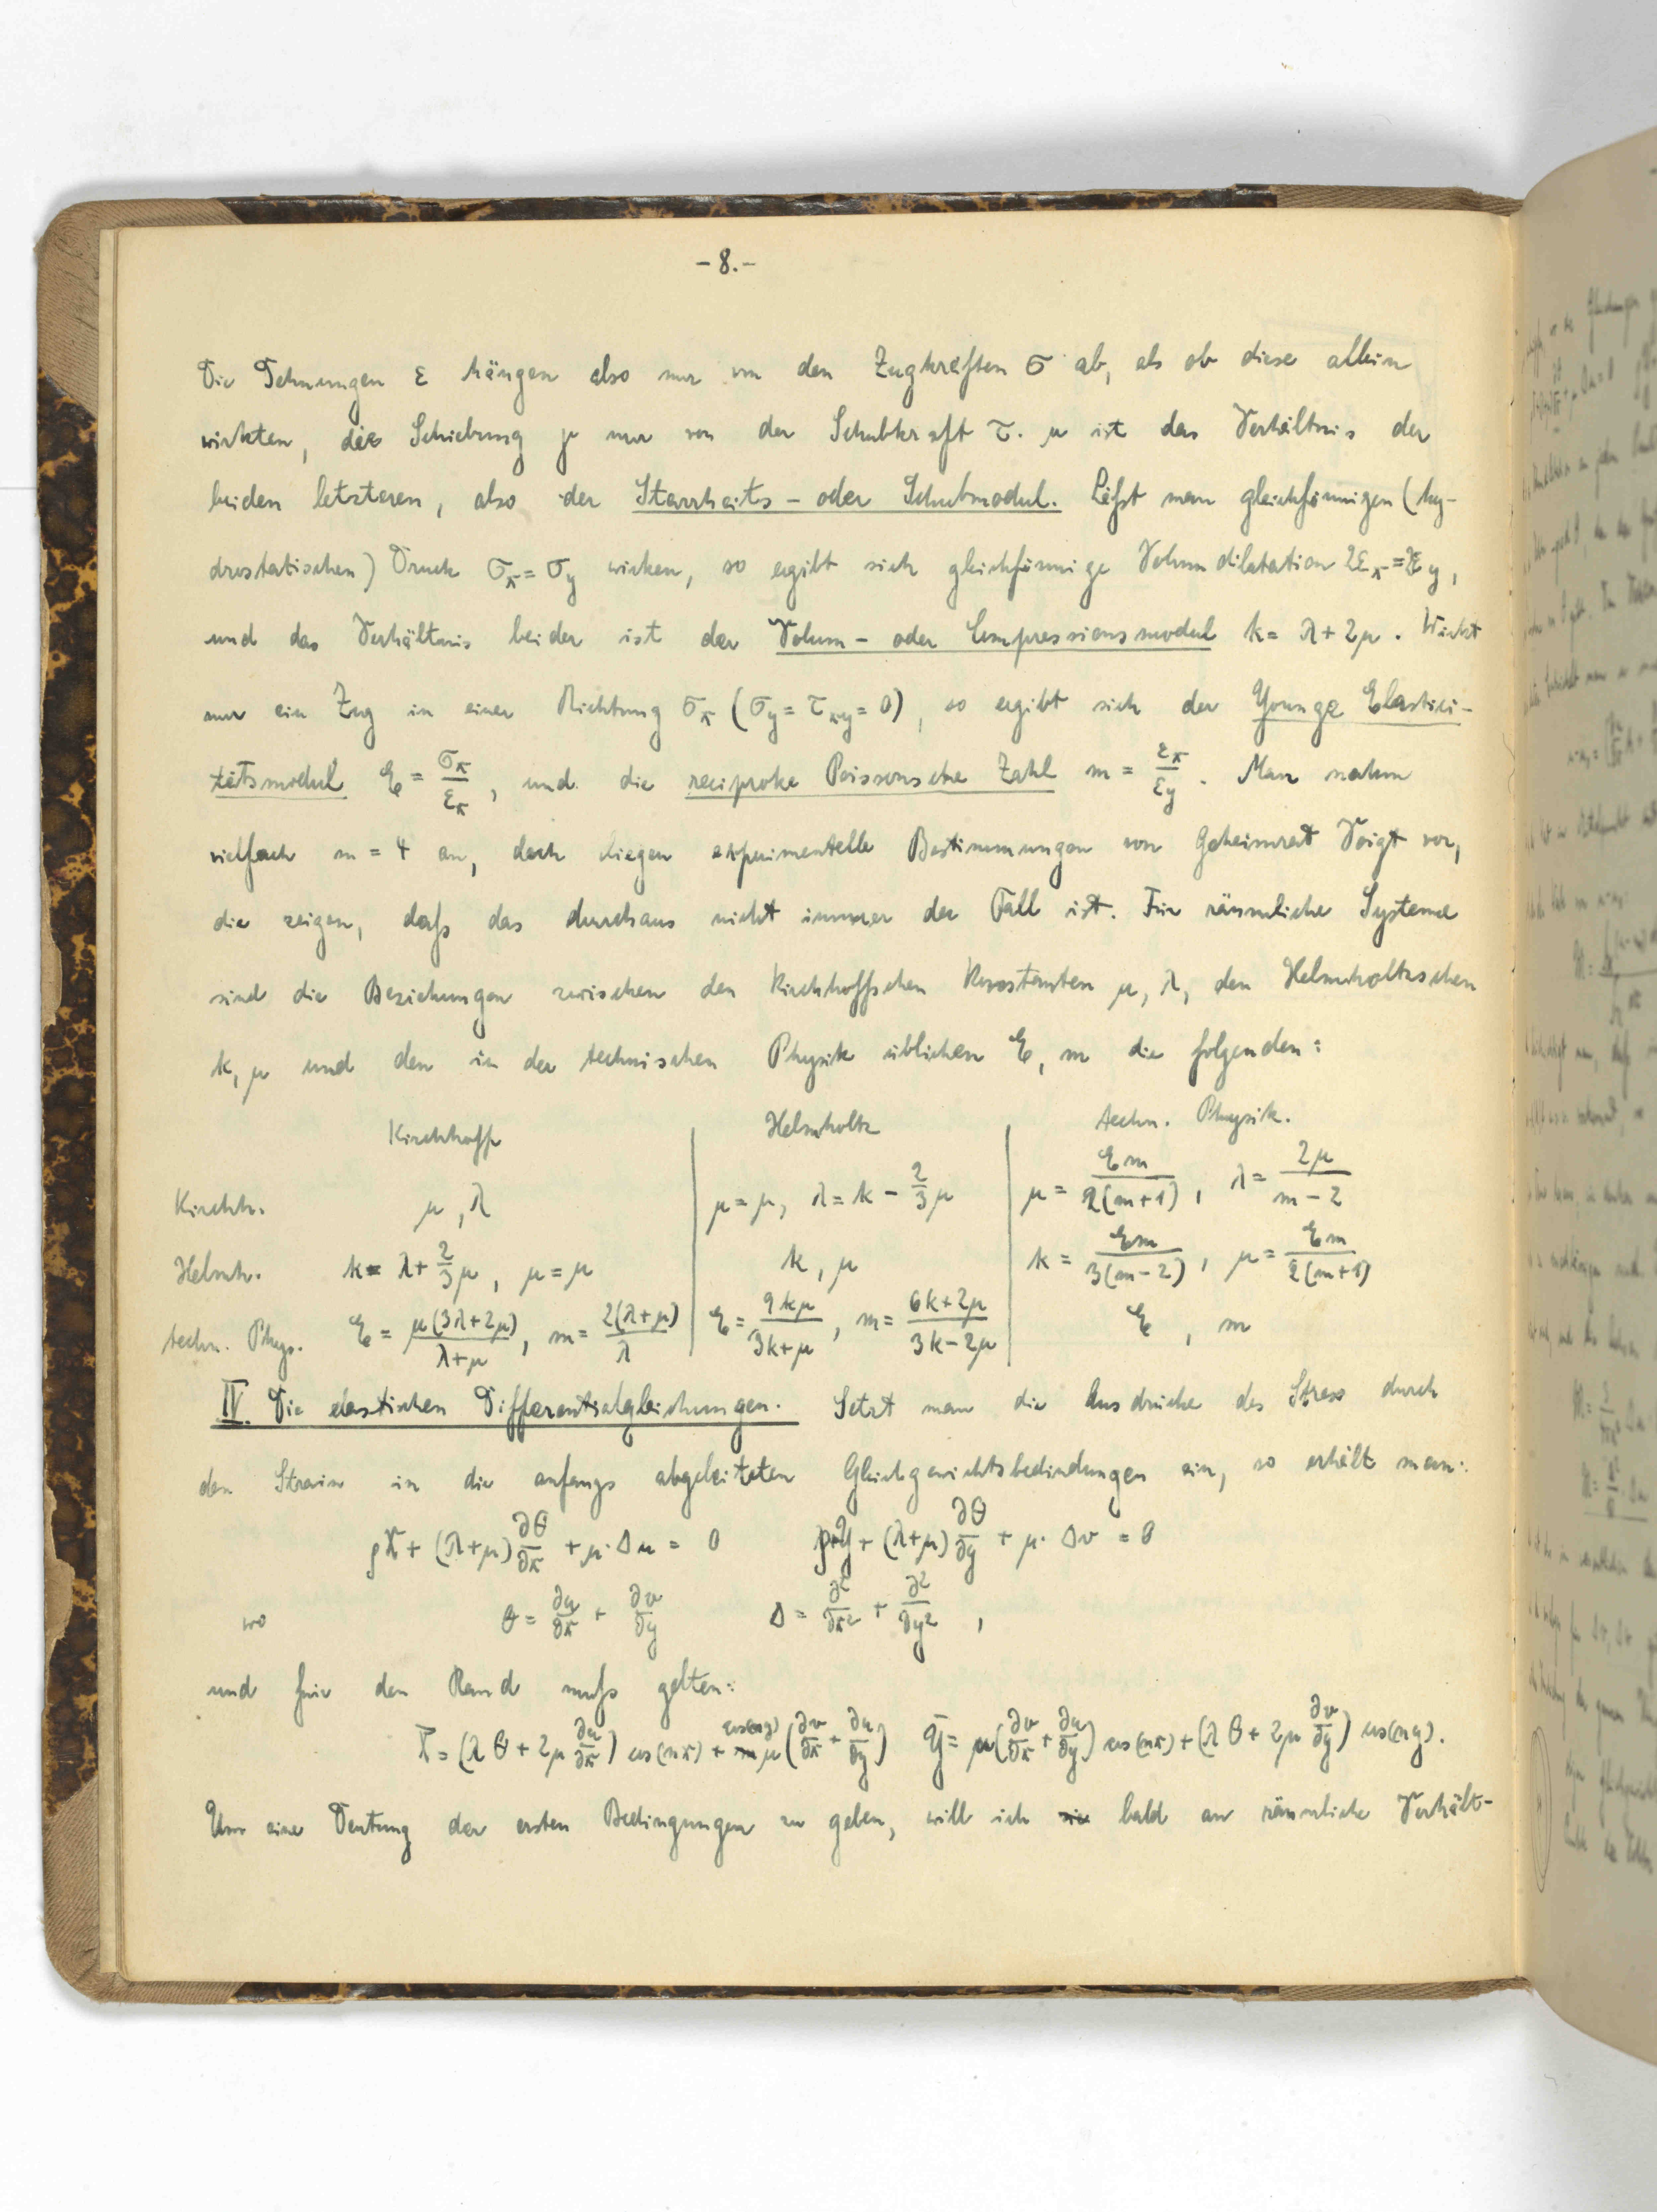 -8.-
Die Dehnungen ε hängen also nur von den Zugkräften σ ab, als ob diese allein
wirkten, die Schiebung γ nur von der Schubkraft τ. μ ist das Verhältnis der
beiden letzteren, also der Starrheits- oder Schubmodul. Läßt man gleichförmigen (hy-
drostatischen) Druck σx = σy wirken, so ergibt sich gleichförmige Volumdilatation 2εx = 2εy,
und das Verhältnis beider ist der Volum- oder Compressionsmodul k = λ + 2μ. Wirkt
nur ein Zug in einer Richtung σx (σy = τxy = 0), so ergibt sich der Younge Elastici-
tätsmodul E = σx/εx, und die reciproke Poissonsche Zahl m = εx/εy. Man nahm
vielfach m = 4 an, doch liegen experimentelle Bestimmungen von Geheimrat Voigt vor,
die zeigen, daß das durchaus nicht immer der Fall ist. Für räumliche Systeme
sind die Beziehungen zwischen den Kirchhoffschen Konstanten μ, λ, den Helmholtzschen
k, μ und den in der technischen Physik üblichen E, m die folgenden:
Kirchhoff | Helmholtz | techn. Physik.
Kirchh. μ, λ | μ = μ, λ = k - 2/3 μ | μ = Em/2(m+1), λ = 2μ/m-2
Helmh. k = λ + 2/3 μ, μ = μ | k, μ | k = Em/3(m-2), μ = Em/2(m+1)
techn. Phys. E = μ(3λ+2μ)/λ+μ, m = 2(λ+μ)/λ | E = 9kμ/3k+μ, m = 6k+2μ/3k-2μ | E, m
IV. Die elastischen Differentialgleichungen. Setzt man die Ausdrücke des Stress durch
den Strain in die anfangs abgeleiteten Gleichgewichtsbedindungen ein, so erhält man:
ρX + (λ+μ) ∂θ/∂x + μ·Δu = 0 ρY + (λ+μ) ∂θ/∂y + μ·Δv = 0
wo θ = ∂u/∂x + ∂v/∂y Δ = ∂²/∂x² + ∂²/∂y²,
und für den Rand muß gelten:
X̄ = (λθ + 2μ ∂u/∂x) cos(nx) + cos(ny) μ(∂v/∂x + ∂u/∂y) Ȳ = μ(∂v/∂x + ∂u/∂y) cos(nx) + (λθ + 2μ ∂v/∂y) cos(ny).
Um eine Deutung der ersten Bedingungen zu geben, will ich sie bald an räumliche Verhält-